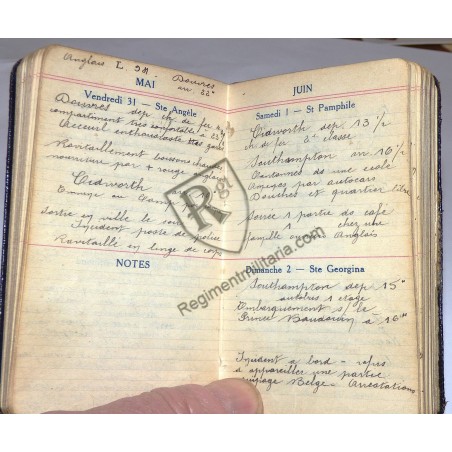 Anglais L. 98. Douvres
au 22°
MAI
Vendredi 31 — Ste Angèle
Douvres dep ch de fer
compartiment très confortable à
Acceuil enthousiaste très
Ravitaillement boissons chaudes
nourriture par + rouge
Tidworth
au Camp
Sortie en ville le soir
Incident poste de police
Ravitaillé en linge de corps
NOTES
JUIN
Samedi 1 — St Pamphile
Tidworth dep 13 1/2
ch de fer 3e classe
Southampton an 16 1/2
Cantonnés ds une école
Amenés par autocars
Douches et quartier libre
Soirée 1 partie ds café
1 chez une
famille Anglais
Dimanche 2 — Ste Georgina
Southampton dep 15°
autobus 1 étage
Embarquement s/ le
Prince Baudouin à 16
Incident a bord - refus
d appareiller une partie
équipage Belge - Arrestations
Rgt
Regimentmilitaria.com